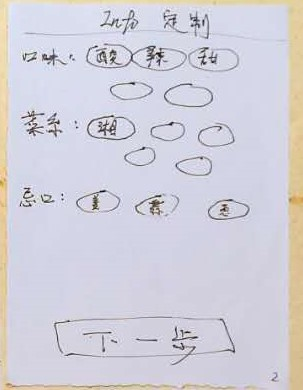 Info 定制
口味: 酸 辣 甜
菜系: 湘
忌口: 姜 蒜 葱
下一步
2